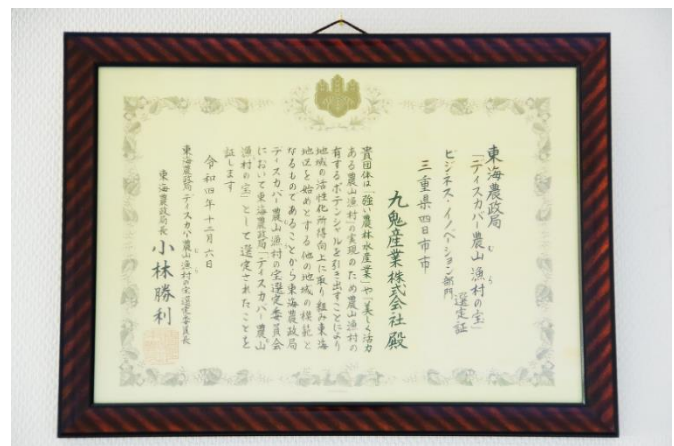 東海農政局
「ディスカバー農山漁村の宝」
むら
選定証
ビジネス・イノベーション部門
三重県四日市市
九鬼産業株式会社殿
貴団体は「強い農林水産業」や「美しく活力
ある農山漁村」の実現のため農山漁村の
有するポテンシャルを引き出すことにより
地域の活性化所得向上に取り組み東海
地域を始めとする他の地域の模範と
なるものであることから東海農政局
ディスカバー農山漁村の宝選定委員会
において東海農政局「ディスカバー農山
漁村の宝」として選定されたことを
証します
令和四年十二月六日
東海農政局ディスカバー農山漁村の宝選定委員長
東海農政局長 小林勝利